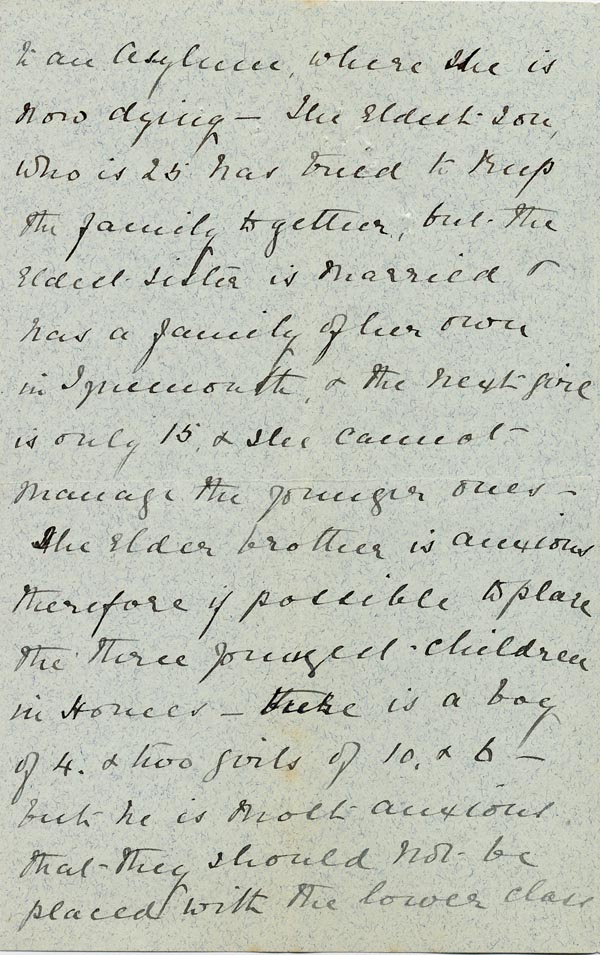 to an Asylum, where she is
now dying — The Eldest Son,
who is 25 has tried to keep
the family together, but the
Eldest sister is married &
has a family of her own
in Tynemouth, & the next girl
is only 15, & she cannot
manage the younger ones —
The Elder brother is anxious
therefore if possible to place
the three youngest children
in Homes — there is a boy
of 4. & two girls of 10, & 6 —
but he is most anxious
that they should not be
placed with the lower class